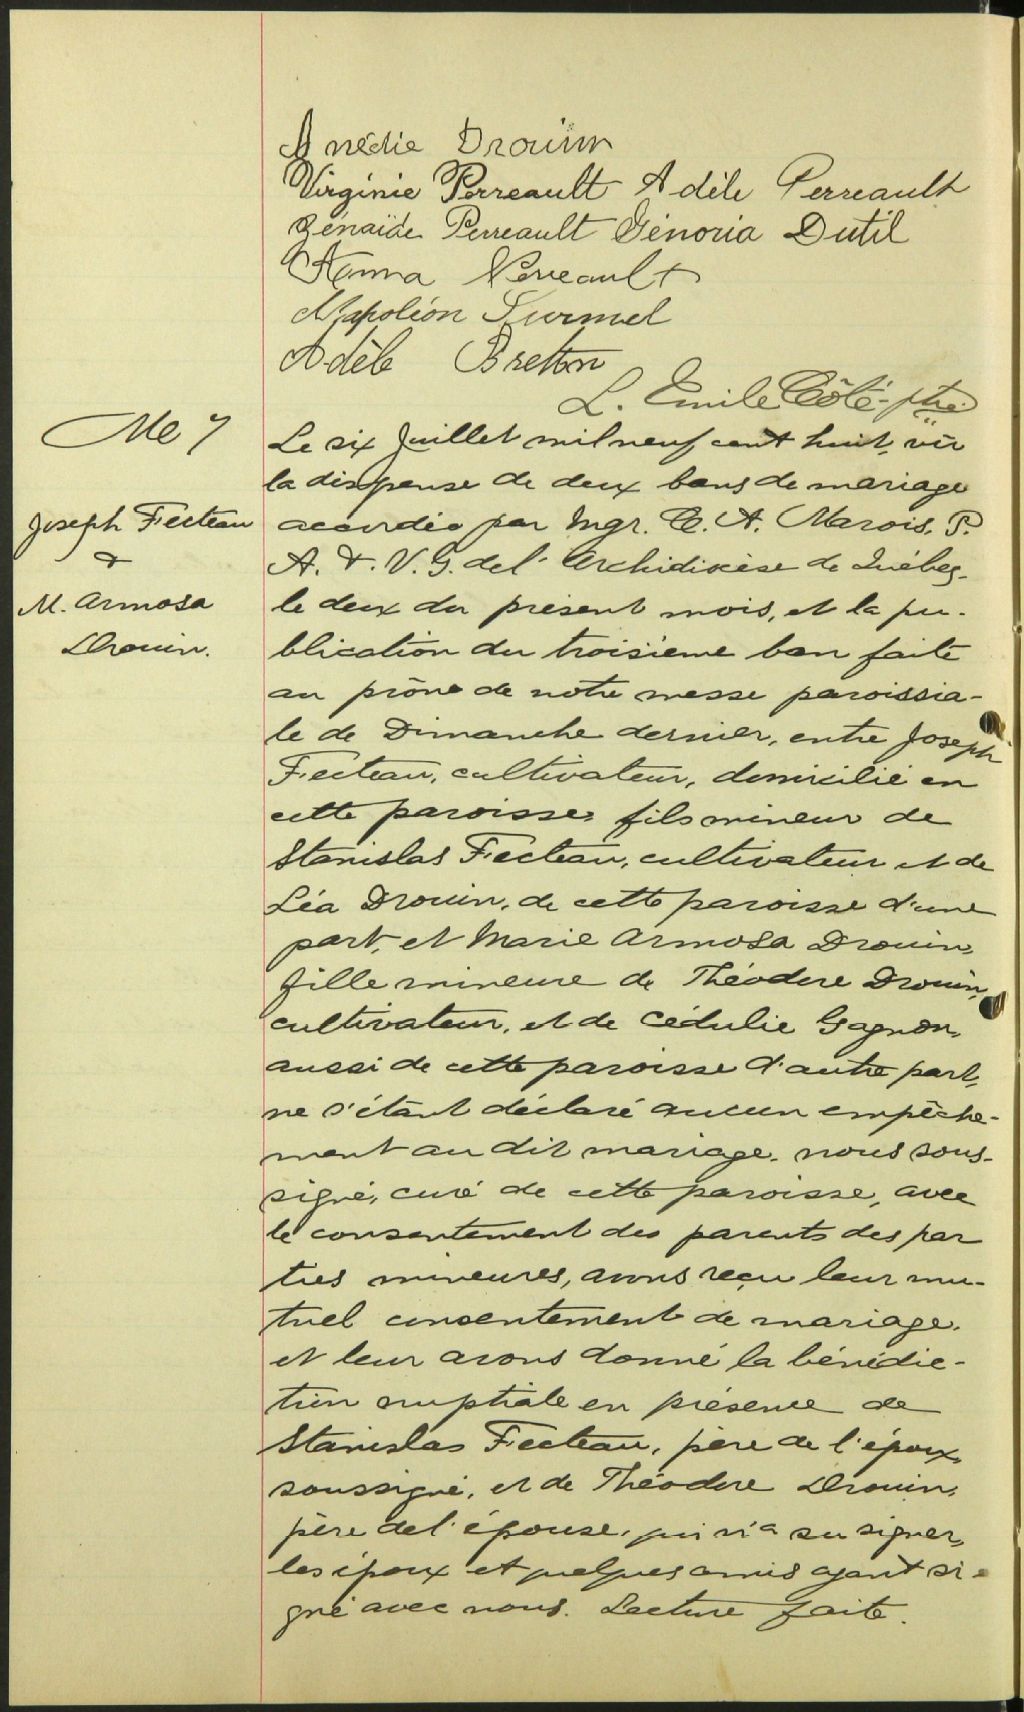 Amédie Drouin
Virginie Perreault Adèle Perreault
Zénaïde Perreault Génoria Dutil
Anna Perreault
Napoléon Turmel
Adèle Breton
L. Emile Côté ptre.
Me 7
Joseph Fecteau
&
M. Armosa
Drouin.
Le six Juillet mil neuf cent huit, vû
la dispense de deux bans de mariage
accordée par Mgr. C. A. Marois, P.
A. & V. G. de l'Archidiocèse de Québec,
le deux du présent mois, et la pu-
blication du troisième ban faite
au prône de notre messe paroissia-
le de Dimanche dernier, entre Joseph
Fecteau, cultivateur, domicilié en
cette paroisse, fils mineur de
Stanislas Fecteau, cultivateur et de
Léa Drouin, de cette paroisse d'une
part, et Marie Armosa Drouin,
fille mineure de Théodore Drouin,
cultivateur, et de Cédulie Gagnon,
aussi de cette paroisse d'autre part,
ne s'étant déclaré aucun empêche-
ment au dit mariage, nous sous-
signé, curé de cette paroisse, avec
le consentement des parents des par
ties mineures, avons reçu leur mu-
tuel consentement de mariage,
et leur avons donné la bénédic-
tion nuptiale en présence de
Stanislas Fecteau, père de l'époux,
soussigné, et de Théodore Drouin,
père de l'épouse, qui n'a su signer,
les époux et quelques amis ayant si-
gné avec nous. Lecture faite.